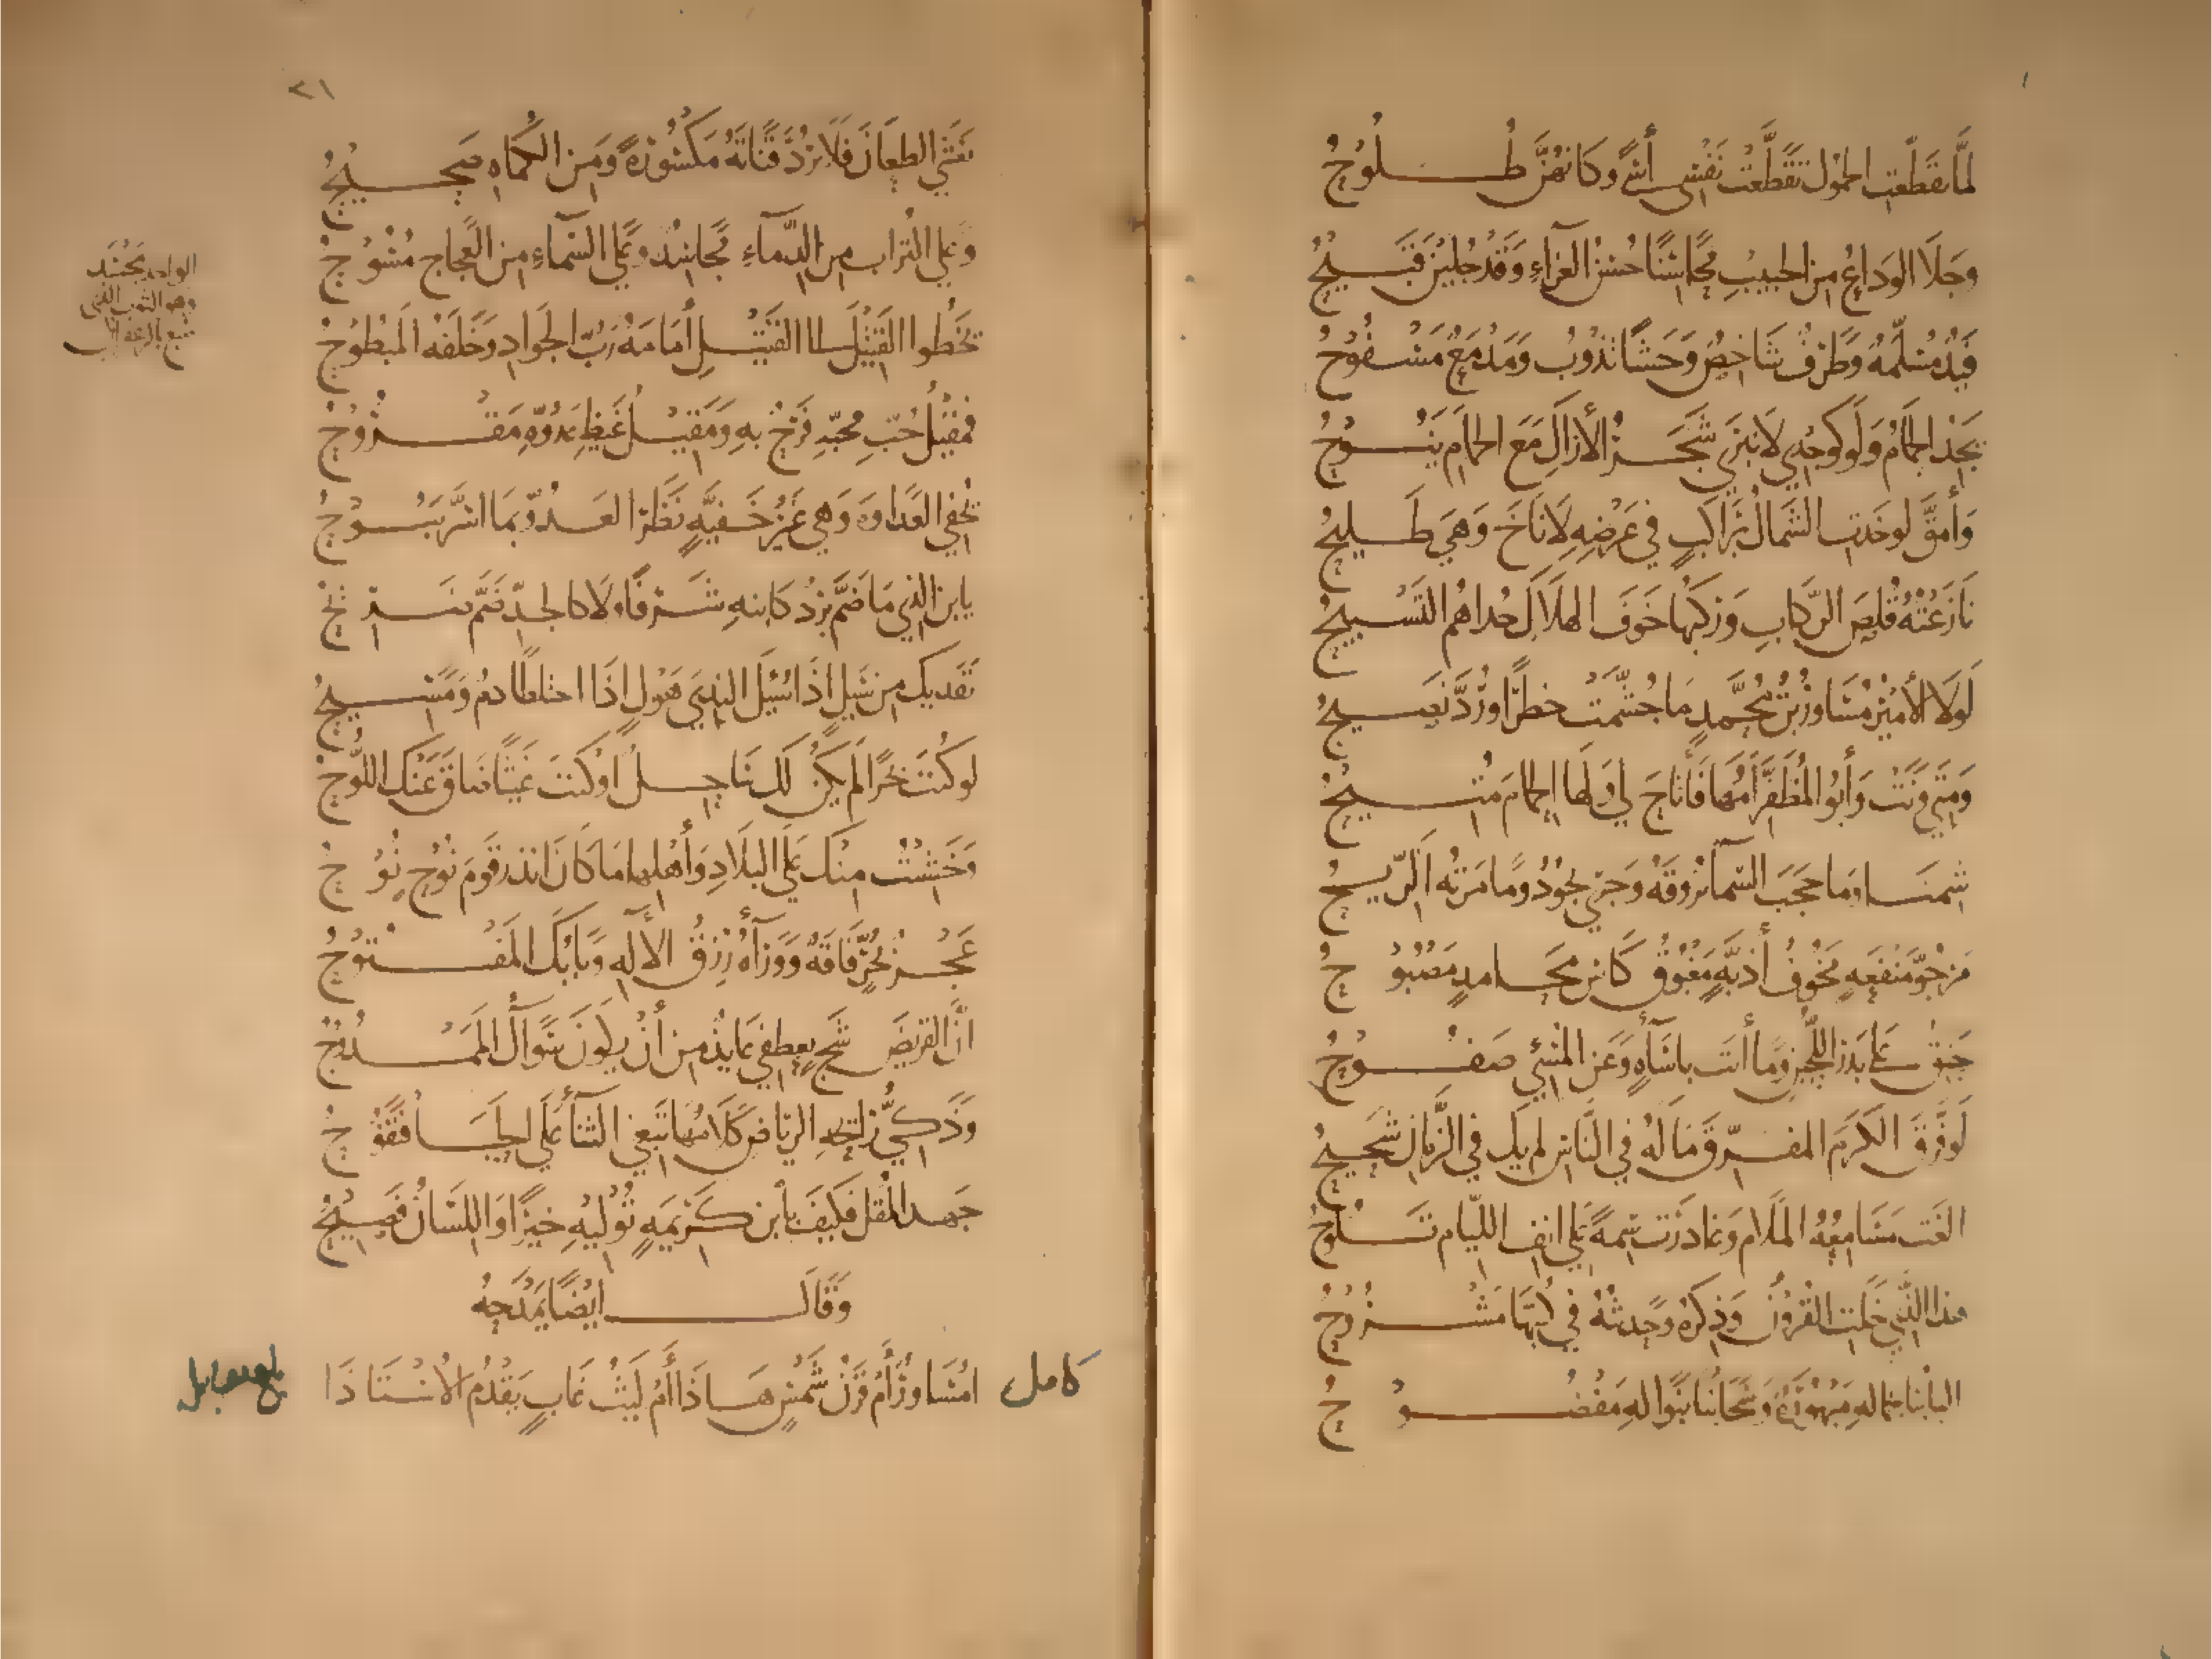 لَمَّا تَقَطَّعَتِ الحُمُولُ تَقَطَّعَتْ نَفْسِي أَسًى وَكَأَنَّهُنَّ طُلُوحُ
وَجَلَا الوَدَاعُ مِنَ الحَبِيبِ مَحَاسِنًا حُسْنُ العَزَاءِ وَقَدْ جُلِينَ قَبِيحُ
فَيَدٌ مُسَلِّمَةٌ وَطَرْفٌ شَاخِصٌ وَحَشًا تَذُوبُ وَمَدْمَعٌ مَسْفُوحُ
يَجِدُ الحَمَامُ وَلَوْ كَوَجْدِي لَانْبَرَى شَجَرُ الأَرَاكِ مَعَ الحَمَامِ يَنُوحُ
وَأَمَقَّ لَوْ خَدَتِ الشَّمَالُ بِرَاكِبٍ فِي عَرْضِهِ لَأَنَاخَ وَهِيَ طَلِيحُ
نَازَعْتُهُ قُلُصَ الرِّكَابِ وَرَكْبُهَا خَوْفَ الهَلَاكِ حُدَاهُمُ التَّسْبِيحُ
لَوْلَا الأَمِيرُ مُسَاوِرُ بْنُ مُحَمَّدٍ مَا جُشِّمَتْ خَطَرًا وَرُدَّ نَصِيحُ
وَمَتَى وَنَتْ وَأَبُو المُظَفَّرِ أَمُّهَا فَأَتَاحَ لِي وَلَهَا الحِمَامَ مُتِيحُ
شِمْنَا وَمَا حَجَبَ السَّمَاءَ بُرُوقَهُ وَحَرًى يَجُودُ وَمَا مَرَتْهُ الرِّيحُ
مَرْجُوُّ مَنْفَعَةٍ مَخُوفُ أَذِيَّةٍ مَغْبُوقُ كَأْسِ مَحَامِدٍ مَصْبُوحُ
حَنِقٌ عَلَى بِدَرِ اللُّجَيْنِ وَمَا أَتَتْ بِإِسَاءَةٍ وَعَنِ المُسِيءِ صَفُوحُ
لَوْ فَرَّقَ الكَرَمَ المُفَرِّقَ مَالَهُ فِي النَّاسِ لَمْ يَكُ فِي الزَّمَانِ شَحِيحُ
أَلْغَتْ مَسَامِعُهُ المَلَامَ وَغَادَرَتْ سِمَةً عَلَى أَنْفِ اللِّيَامِ تَلُوحُ
هَذَا الَّذِي خَلَتِ القُرُونُ وَذِكْرُهُ وَحَدِيثُهُ فِي كُتْبِهَا مَشْرُوحُ
أَلْبَابُنَا بِجَمَالِهِ مَبْهُورَةٌ وَسَحَابُنَا بِنَوَالِهِ مَفْضُوحُ
٢١
يَغْشَى الطِّعَانَ فَلَا يَرُدُّ قَنَاتَهُ مَكْسُورَةً وَمِنَ الكُمَاةِ صَحِيحُ
وَعَلَى التُّرَابِ مِنَ الدِّمَاءِ مَجَاسِدٌ وَعَلَى السَّمَاءِ مِنَ العَجَاجِ مُسُوحُ
يَخْطُو القَتِيلَ إِلَى القَتِيلِ أَمَامَهُ رَبُّ الجَوَادِ وَخَلْفَهُ المَبْطُوحُ
فَمَقِيلُ حُبِّ مُحِبِّهِ فَرِحٌ بِهِ وَمَقِيلُ غَيْظِ عَدُوِّهِ مَقْرُوحُ
يُخْفِي العَدَاوَةَ وَهِيَ غَيْرُ خَفِيَّةٍ نَظَرُ العَدُوِّ بِمَا أَسَرَّ يَبُوحُ
يَا ابْنَ الَّذِي مَا ضَمَّ بُرْدٌ كَابْنِهِ شَرَفًا وَلَا كَالجَدِّ ضَمَّ ضَرِيحُ
نَفْدِيكَ مِنْ سَيْلٍ إِذَا سُئِلَ النَّدَى هَوْلٍ إِذَا اخْتَلَطَا دَمٌ وَمَسِيحُ
لَوْ كُنْتَ بَحْرًا لَمْ يَكُنْ لَكَ سَاحِلٌ أَوْ كُنْتَ غَيْثًا ضَاقَ عَنْكَ اللُّوحُ
وَخَشِيتُ مِنْكَ عَلَى البِلَادِ وَأَهْلِهَا مَا كَانَ أَنْذَرَ قَوْمَ نُوحٍ نُوحُ
عَجْزٌ بِحُرٍّ فَاقَةٌ وَوَرَاءَهُ رِزْقُ الإِلَهِ وَبَابُكَ المَفْتُوحُ
إِنَّ القَرِيضَ شَجٍ بِعِطْفِي عَائِذٌ مِنْ أَنْ يَكُونَ سَوَاءَكَ المَمْدُوحُ
وَذَكِيُّ رَائِحَةِ الرِّيَاضِ كَلَامُهَا تَبْغِي الثَّنَاءَ عَلَى الحَيَا فَتَفُوحُ
جُهْدُ المُقِلِّ فَكَيْفَ بِابْنِ كَرِيمَةٍ تُولِيهِ خَيْرًا وَاللِّسَانُ فَصِيحُ
وَقَالَ أَيْضًا يَمْدَحُهُ
كامل أَمُسَاوِرٌ أَمْ قَرْنُ شَمْسٍ هَذَا أَمْ لَيْثُ غَابٍ يَقْدُمُ الأُسْتَاذَا
الواحد مجسد
وهو الثوب الذي